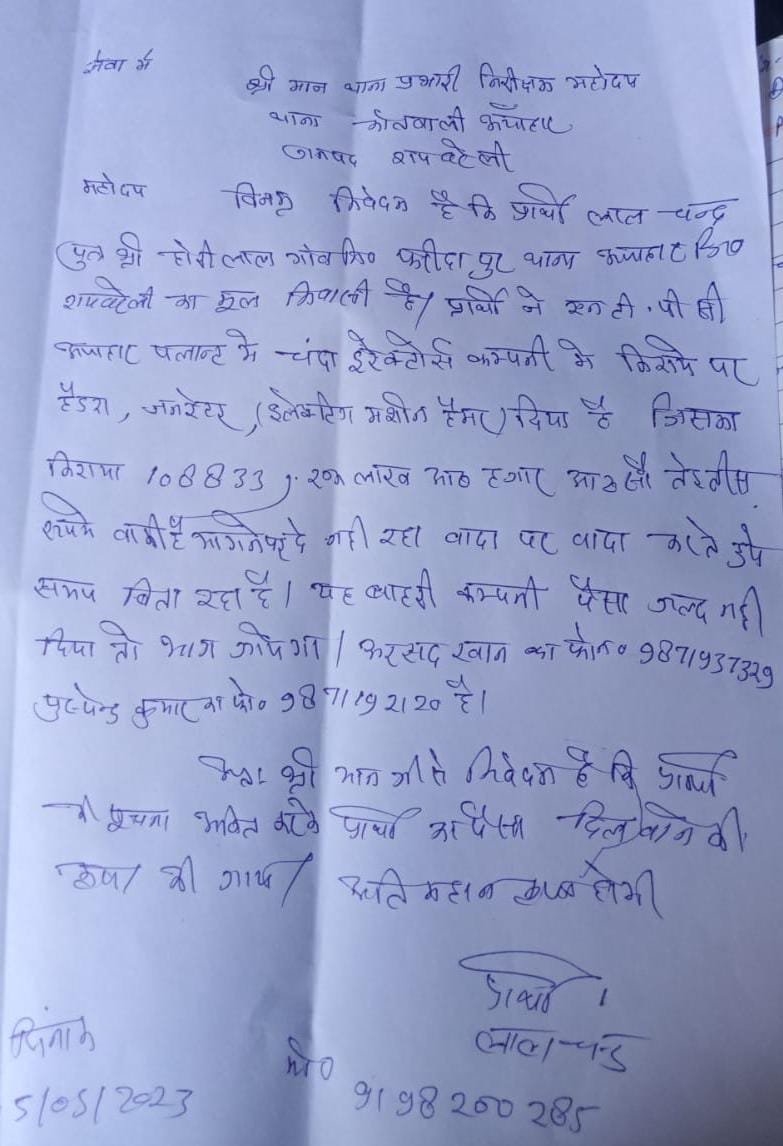 सेवा में
श्री मान थाना प्रभारी निरीक्षक महोदय
थाना कोतवाली ऊँचाहार
जनपद रायबरेली
महोदय विनम्र निवेदन है कि प्रार्थी लाल चन्द्र
पुत्र श्री होरी लाल गाँव नि० फरीदा पुर थाना ऊँचाहार जि०
रायबरेली का मूल निवासी है/ प्रार्थी ने एन टी. पी सी
ऊंचाहार पलान्ट मे चंदा इरेक्टोर्स कम्पनी मे किराये पर
हैडरा, जनरेटर, (इलेक्टिग मशीन हैमर) दिया है जिसका
किराया 108833 एक लाख आठ हजार आठ सौ तेइतीस
रूपये बाकी है मागने पर दे नही रहा वादा पर वादा करते हुये
समय बिता रहा है। यह बाहरी कम्पनी पैसा जल्द नही
दिया तो भाग जायेगा/ अरसद खान का फोन० 9871937329
पुस्पेन्द्र कुमार का फो० 9871192120 है।
अतः श्री मान जी से निवेदन है कि प्रार्थी
की सूचना अंकित करके प्रार्थी का पैसा दिलवाने की
कृपा की जाय/ अति महान कृपा होगी
प्रार्थी
लाल चन्द्र
दिनांक
मो० 9198200285
5/05/2023